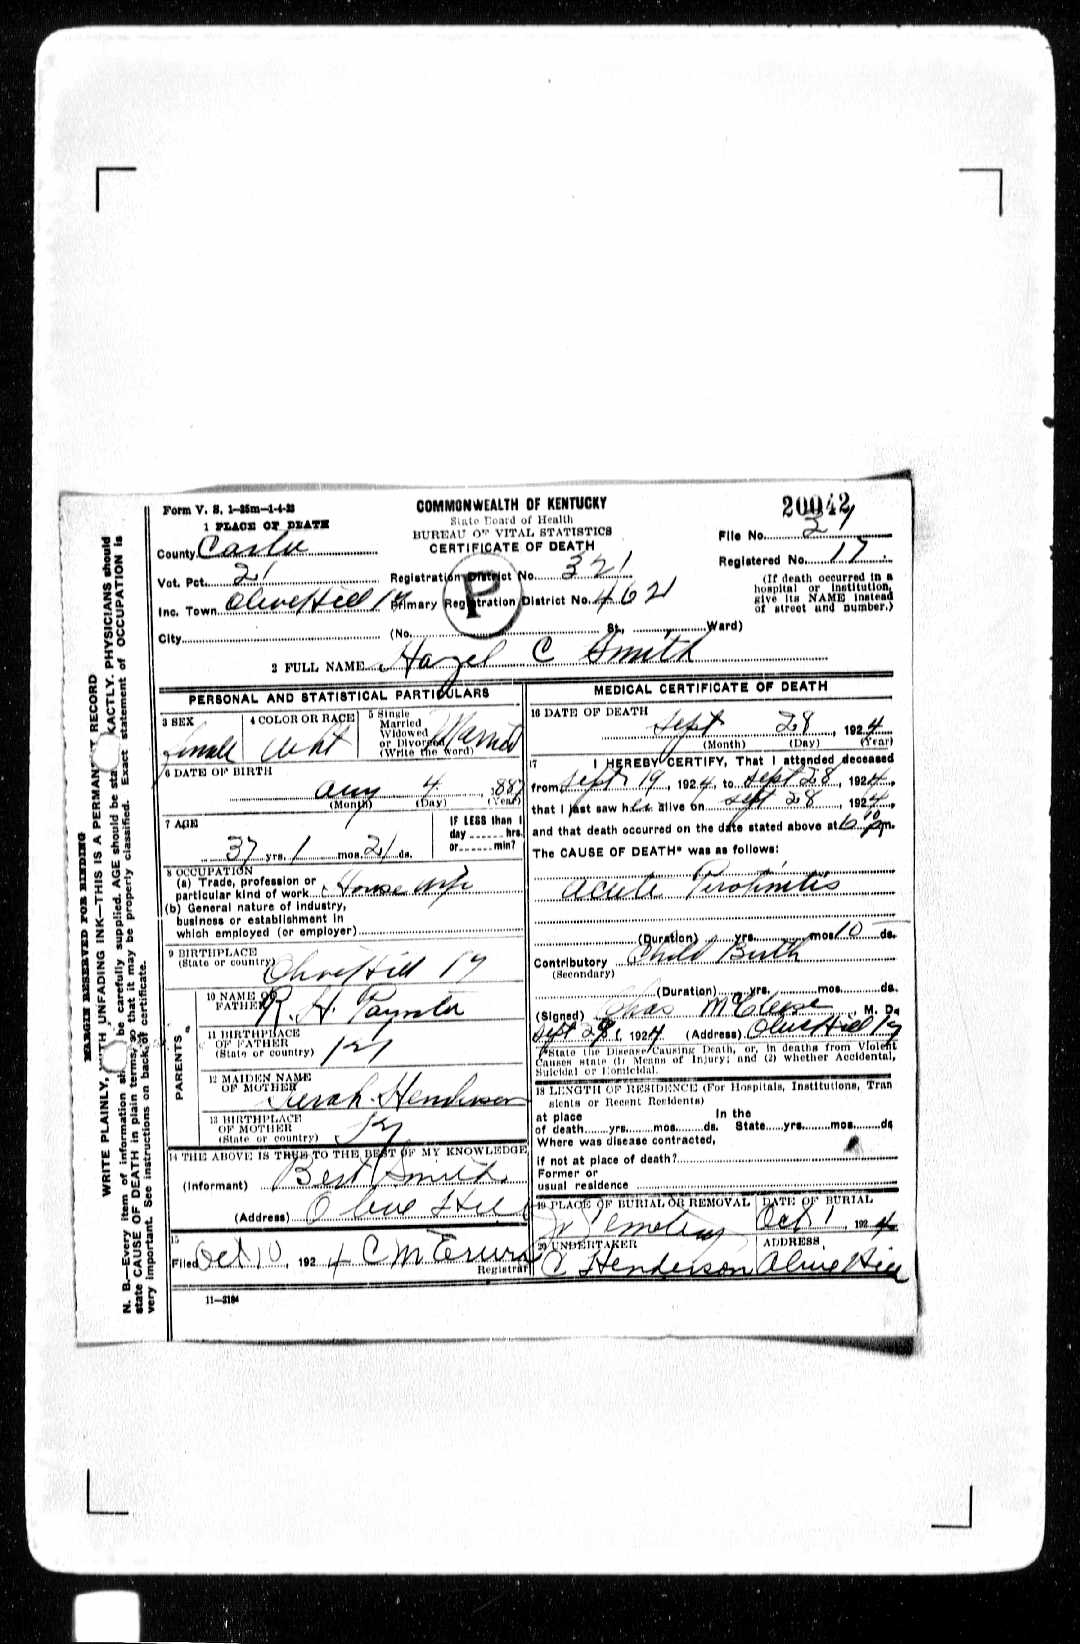 Form V. S. 1-25m-1-4-23
COMMONWEALTH OF KENTUCKY
State Board of Health
BUREAU OF VITAL STATISTICS
CERTIFICATE OF DEATH
20042
File No. 27
Registered No. 17
(If death occurred in a hospital or institution, give its NAME instead of street and number.)
1 PLACE OF DEATH
County Carter
Vot. Pct. 21 Registration District No. 321
Inc. Town Olive Hill Ky Primary Registration District No. 4621
P
City (No. St., Ward)
2 FULL NAME Hazel C Smith
PERSONAL AND STATISTICAL PARTICULARS
3 SEX female
4 COLOR OR RACE Wht
5 Single Married Widowed or Divorced (Write the word) Married
6 DATE OF BIRTH
Aug 4, 1887
(Month) (Day) (Year)
7 AGE
37 yrs. 1 mos. 21 ds.
IF LESS than 1 day hrs. or min?
8 OCCUPATION
(a) Trade, profession or particular kind of work House wife
(b) General nature of industry, business or establishment in which employed (or employer)
9 BIRTHPLACE
(State or country) Olive Hill Ky
PARENTS
10 NAME OF FATHER R. H. Paynter
11 BIRTHPLACE OF FATHER (State or country) Ky
12 MAIDEN NAME OF MOTHER Henderson
13 BIRTHPLACE OF MOTHER (State or country) Ky
14 THE ABOVE IS TRUE TO THE BEST OF MY KNOWLEDGE
(Informant) Bert Smith
(Address) Olive Hill
15
Filed Oct 10, 1924 C M Registrar
11-3184
MEDICAL CERTIFICATE OF DEATH
16 DATE OF DEATH
Sept 28, 1924
(Month) (Day) (Year)
17 I HEREBY CERTIFY, That I attended deceased
from Sept 19, 1924, to Sept 28, 1924,
that I last saw her alive on Sept 28, 1924,
and that death occurred on the date stated above at 6 10 pm.
The CAUSE OF DEATH* was as follows:
Acute Peratinitis
(Duration) yrs. mos 10 ds.
Contributory Child Birth
(Secondary)
(Duration) yrs. mos. ds.
(Signed) Chas McCleese, M. D.
Sept 29, 1924 (Address) Olive Hill Ky
*State the Disease Causing Death, or, in deaths from Violent Causes state (1) Means of Injury; and (2) whether Accidental, Suicidal or Homicidal.
18 LENGTH OF RESIDENCE (For Hospitals, Institutions, Transients or Recent Residents)
at place of death yrs. mos. ds. In the State yrs. mos. ds
Where was disease contracted,
if not at place of death?
Former or usual residence
19 PLACE OF BURIAL OR REMOVAL
DATE OF BURIAL Oct 1, 1924
20 UNDERTAKER C Henderson
ADDRESS Olive Hill
MARGIN RESERVED FOR BINDING
WRITE PLAINLY, WITH UNFADING INK—THIS IS A PERMANENT RECORD
N. B.—Every item of information should be carefully supplied. AGE should be stated EXACTLY. PHYSICIANS should
state CAUSE OF DEATH in plain terms, so that it may be properly classified. Exact statement of OCCUPATION is
very important. See instructions on back of certificate.